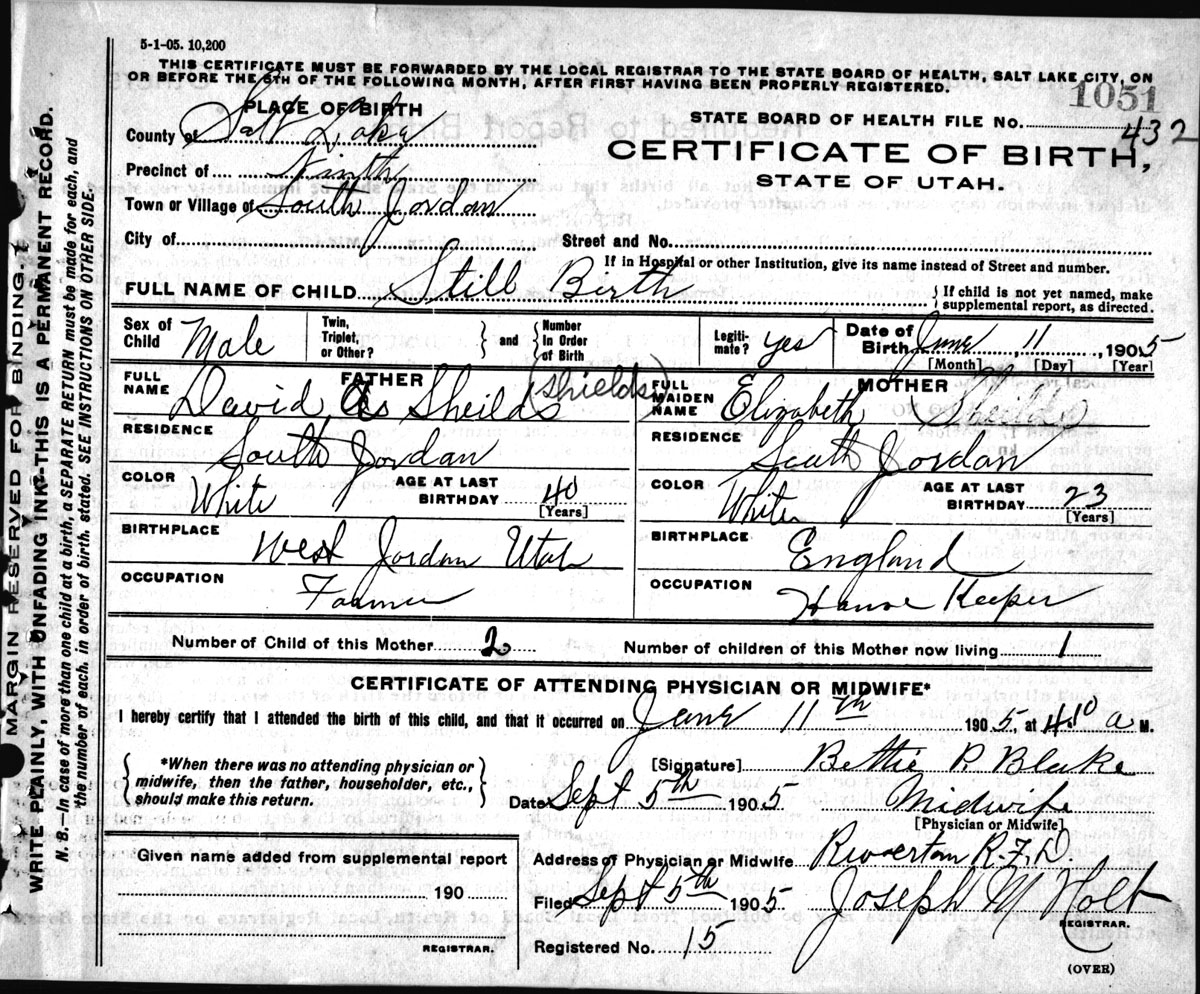 5-1-05. 10,200
THIS CERTIFICATE MUST BE FORWARDED BY THE LOCAL REGISTRAR TO THE STATE BOARD OF HEALTH, SALT LAKE CITY, ON
OR BEFORE THE 5TH OF THE FOLLOWING MONTH, AFTER FIRST HAVING BEEN PROPERLY REGISTERED.
1051
PLACE OF BIRTH
STATE BOARD OF HEALTH FILE NO. 432
County of Salt Lake
CERTIFICATE OF BIRTH,
Precinct of Ninth
STATE OF UTAH.
Town or Village of South Jordan
City of
Street and No.
If in Hospital or other Institution, give its name instead of Street and number.
FULL NAME OF CHILD Still Birth
{ If child is not yet named, make
supplemental report, as directed.
Sex of Child Male
Twin, Triplet, or Other? } and { Number In Order of Birth
Legiti-mate? yes
Date of Birth June, 11, 1905
[Month] [Day] [Year]
FATHER
FULL NAME David As Sheilds (Shields)
RESIDENCE South Jordan
COLOR White
AGE AT LAST BIRTHDAY 40
[Years]
BIRTHPLACE West Jordan Utah
OCCUPATION Farmer
MOTHER
FULL MAIDEN NAME Elizabeth
RESIDENCE South Jordan
COLOR White
AGE AT LAST BIRTHDAY 23
[Years]
BIRTHPLACE England
OCCUPATION House Keeper
Number of Child of this Mother 2
Number of children of this Mother now living 1
CERTIFICATE OF ATTENDING PHYSICIAN OR MIDWIFE*
I hereby certify that I attended the birth of this child, and that it occurred on June 11th 1905, at 4.10 a M.
{ *When there was no attending physician or
midwife, then the father, householder, etc.,
should make this return. }
[Signature] Bettie P. Blake
Date Sept 5th 1905 Midwife
[Physician or Midwife]
Given name added from supplemental report
190
REGISTRAR.
Address of Physician or Midwife Riverton R.F.D.
Filed Sept 5th 1905 Joseph M Holt
REGISTRAR.
Registered No. 15
(OVER)
MARGIN RESERVED FOR BINDING.
WRITE PLAINLY, WITH UNFADING INK—THIS IS A PERMANENT RECORD.
N. B.—In case of more than one child at a birth, a SEPARATE RETURN must be made for each, and
the number of each, in order of birth, stated. SEE INSTRUCTIONS ON OTHER SIDE.